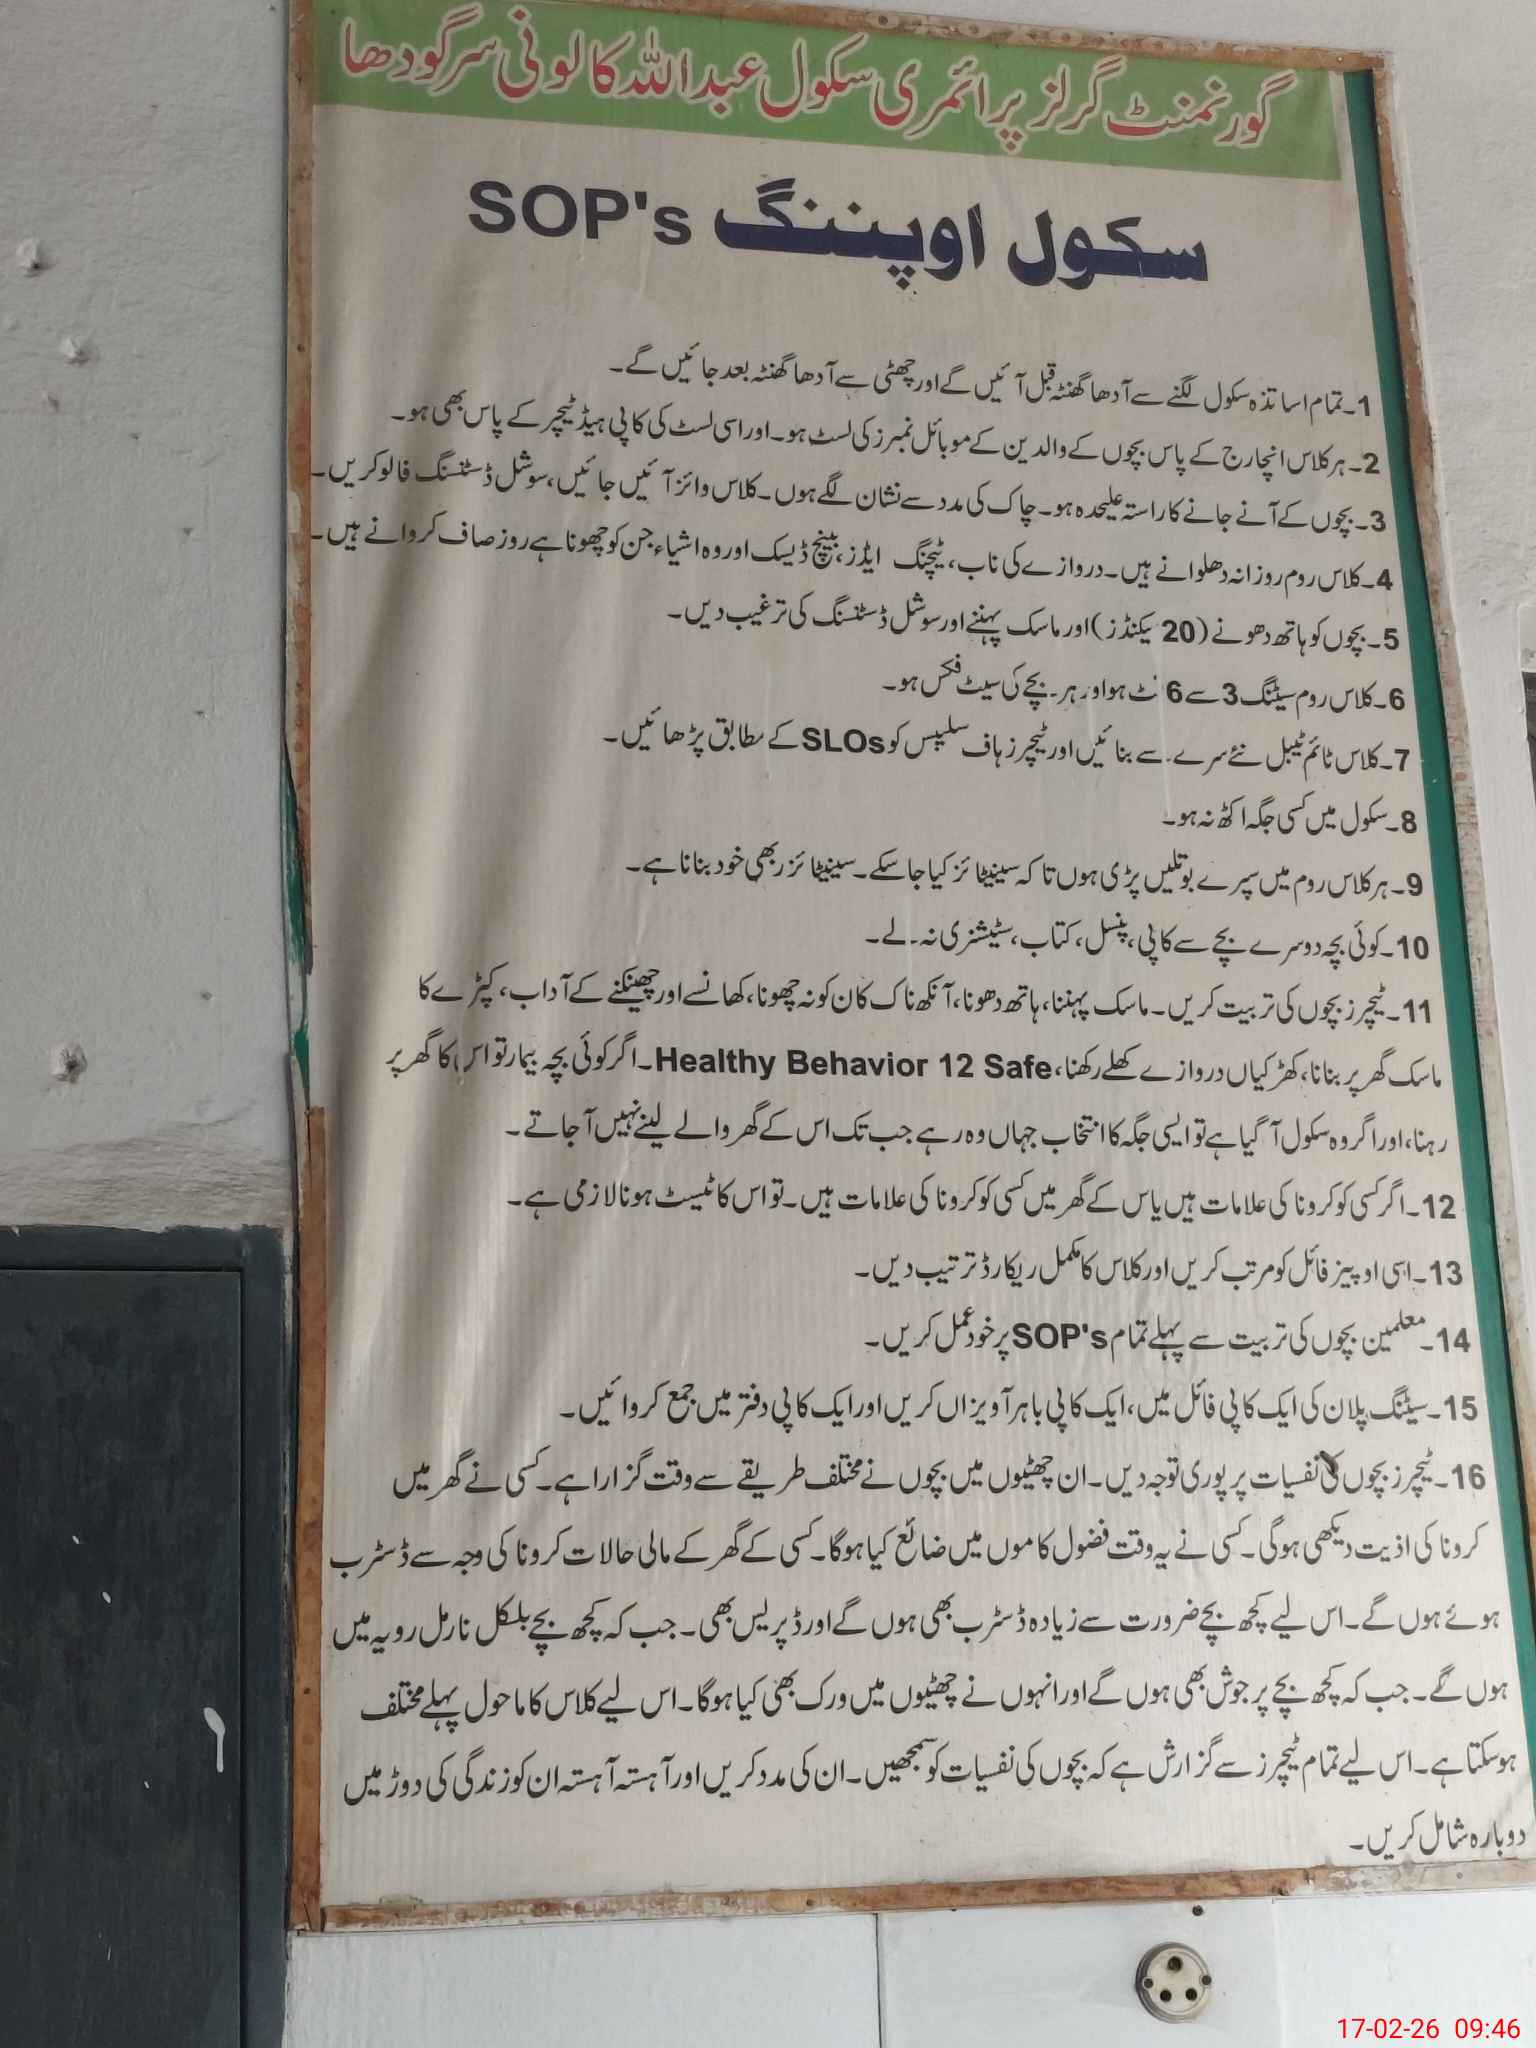 گورنمنٹ گرلز پرائمری سکول عبداللہ کالونی سرگودھا
سکول اوپننگ SOP's
1۔تمام اساتذہ سکول لگنے سے آدھا گھنٹہ قبل آئیں گے اور چھٹی سے آدھا گھنٹہ بعد جائیں گے۔
2۔ہر کلاس انچارج کے پاس بچوں کے والدین کے موبائل نمبرز کی لسٹ ہو۔اور اسی لسٹ کی کاپی ہیڈ ٹیچر کے پاس بھی ہو۔
3۔بچوں کے آنے جانے کا راستہ علیحدہ ہو۔چاک کی مدد سے نشان لگے ہوں۔کلاس وائز آئیں جائیں،سوشل ڈسٹنسنگ فالو کریں۔
4۔کلاس روم روزانہ دھلوانے ہیں۔دروازے کی ناب، ٹیچنگ ایڈز، بینچ ڈیسک اور وہ اشیاء جن کو چھونا ہے روز صاف کروانے ہیں۔
5۔بچوں کو ہاتھ دھونے (20 یکنڈز) اور ماسک پہننے اور سوشل ڈسٹنسنگ کی ترغیب دیں۔
6۔کلاس روم سیٹنگ 3 سے 6 ہو اور ہر بچے کی سیٹ فکس ہو۔
7۔کلاس ٹائم ٹیبل نئے سرے سے بنائیں اور ٹیچرز ہاف سلیبس کو SLOs کے مطابق پڑھائیں۔
8۔سکول میں کسی جگہ اکٹھ نہ ہو۔
9۔ہر کلاس روم میں سپرے بوتلیں پڑی ہوں تا کہ سینیٹائز کیا جا سکے۔سینیٹائزر بھی خود بنانا ہے۔
10۔کوئی بچہ دوسرے بچے سے کاپی، پنسل، کتاب، سٹیشنری نہ لے۔
11۔ٹیچرز بچوں کی تربیت کریں۔ماسک پہننا، ہاتھ دھونا، آنکھ ناک کان کو نہ چھونا، کھانسے اور چھینکنے کے آداب، کپڑے کا
ماسک گھر پر بنانا، کھڑکیاں دروازے کھلے رکھنا، Healthy Behavior 12 Safe۔اگر کوئی بچہ بیمار تو اس کا گھر پر
رہنا، اور اگر وہ سکول آ گیا ہے تو ایسی جگہ کا انتخاب جہاں وہ رہے جب تک اس کے گھر والے لینے نہیں آ جاتے۔
12۔اگر کسی کو کرونا کی علامات ہیں یا س کے گھر میں کسی کو کرونا کی علامات ہیں۔تو اس کا ٹیسٹ ہونا لازمی ہے۔
13۔ایسی او پیز فائل کو مرتب کریں اور کلاس کا مکمل ریکارڈ ترتیب دیں۔
14۔معلمین بچوں کی تربیت سے پہلے تمام SOP's پر خود عمل کریں۔
15۔سیٹنگ پلان کی ایک کاپی فائل میں، ایک کاپی باہر آویزاں کریں اور ایک کاپی دفتر میں جمع کروائیں۔
16۔ٹیچرز بچوں کی نفسیات پر پوری توجہ دیں۔ان چھٹیوں میں بچوں نے مختلف طریقے سے وقت گزارا ہے۔کسی نے گھر میں
کرونا کی اذیت دیکھی ہوگی۔کسی نے یہ وقت فضول کاموں میں ضائع کیا ہوگا۔کسی کے گھر کے مالی حالات کرونا کی وجہ سے ڈسٹرب
ہوئے ہوں گے۔اس لیے کچھ بچے ضرورت سے زیادہ ڈسٹرب بھی ہوں گے اور ڈپریس بھی۔جب کہ کچھ بچے بلکل نارمل رویہ میں
ہوں گے۔جب کہ کچھ بچے پر جوش بھی ہوں گے اور انہوں نے چھٹیوں میں ورک بھی کیا ہوگا۔اس لیے کلاس کا ماحول پہلے مختلف
ہو سکتا ہے۔اس لیے تمام ٹیچرز سے گزارش ہے کہ بچوں کی نفسیات کو سمجھیں۔ان کی مدد کریں اور آہستہ آہستہ ان کو زندگی کی دوڑ میں
دوبارہ شامل کریں۔
17-02-26 09:46